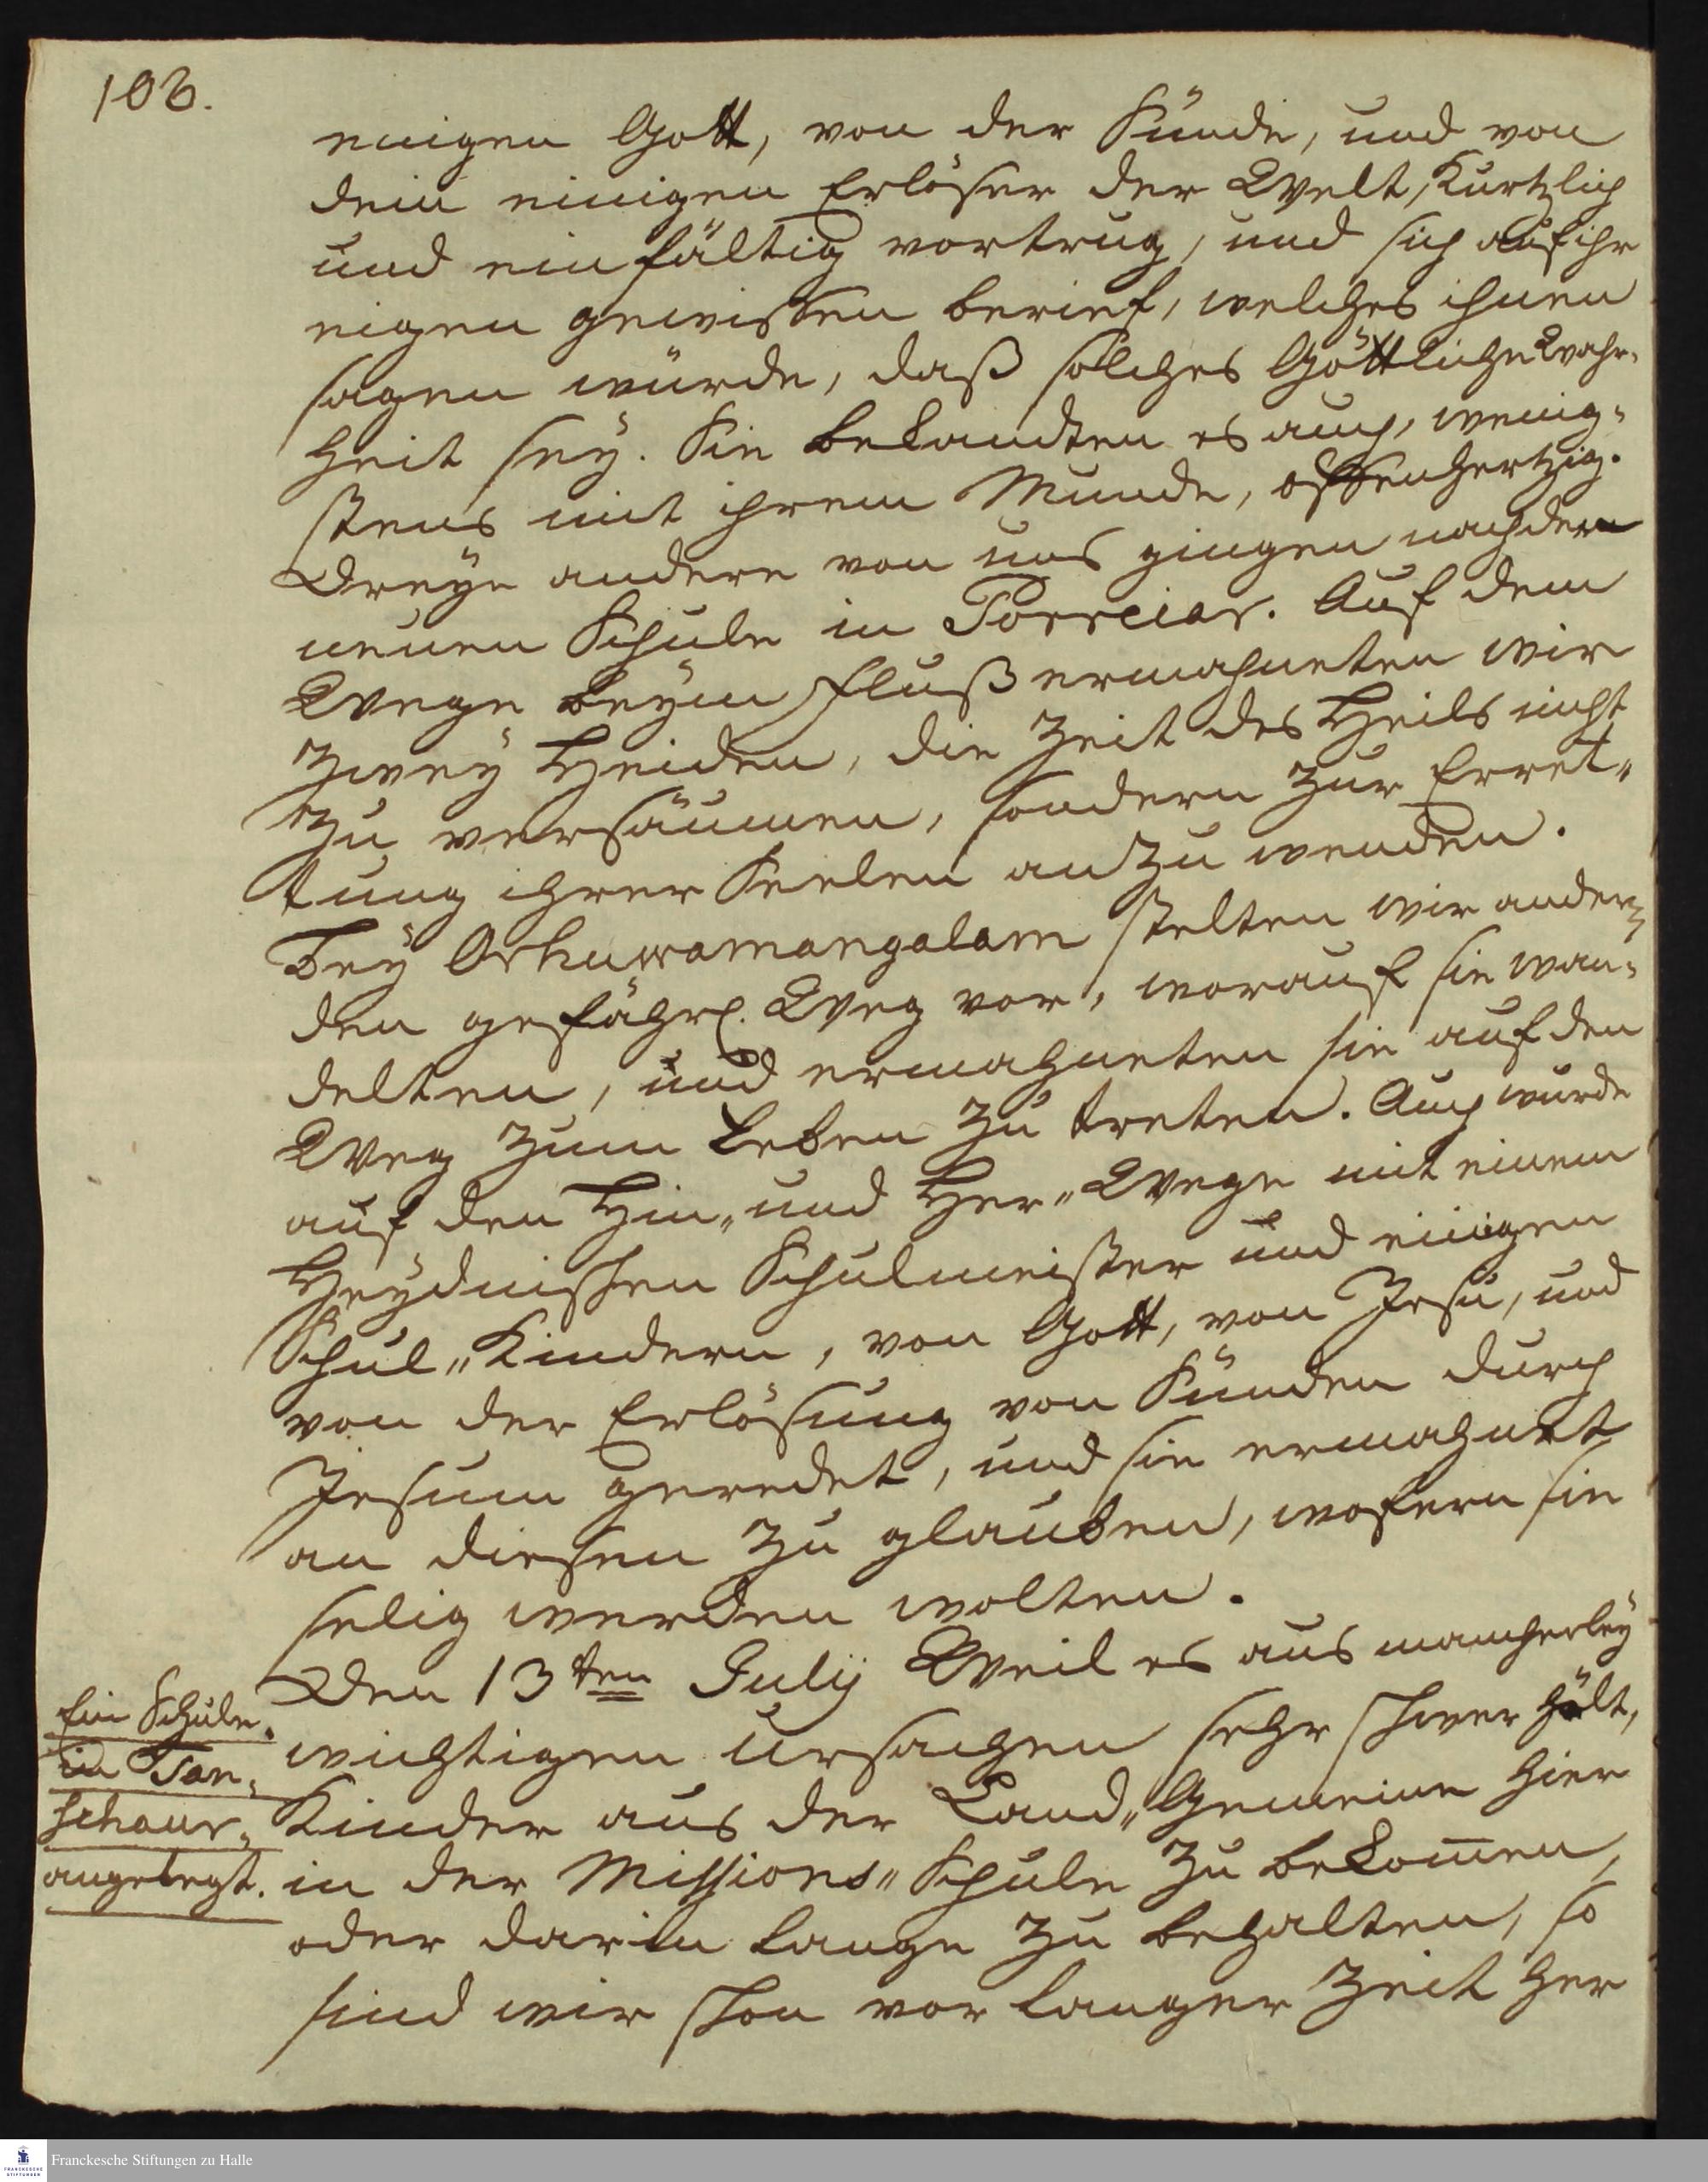 106.
einigen Gott, von der Sünde, und von
dem einigen Erlöser der Welt, Kurtzlich
und einfältig vortrug, und sich auf ihr
eigen gewissen berief, welches ihnen
sagen würde, daß solches Göttliche Wahr-
heit seÿ. Sie bekandten es auch, wenig-
stens mit ihrem Munde, offenhertzig.
Dreÿe andere von uns gingen nach der
neuen Schule in Porreiar. Auf dem
Wege beÿm Fluß ermahneten wir
zweÿ Heiden, die Zeit des Heils nicht
zu versäumen, sondern zur Erret„
tung ihrer Seelen anzuwenden.
Beÿ Orhuwamangalam stelten wir andern
den gefährl. Weg vor, worauf sie wan-
delten, und ermahneten sie auf den
Weg zum Leben zu treten. Auch wurde
auf den Hin„ und Her„ Wege mit einem
Heÿdnischen Schulmeister und einigen
Schul„ Kindern, von Gott, von Jesu, und
von der Erlösung von Sünden durch
Jesum geredet, und sie ermahnet
an diesen zu glauben, wofern sie
selig werden wolten.
Den 13ten Julÿ Weil es aus mancherleÿ
wichtigen Ursachen sehr schwer hält,
Kinder aus der Land„ Gemeine hier
in der Missions„ Schule zu bekom̄en,
oder darin lange zu behalten, so
sind wir schon vor langer Zeit her
Ein Schule
in Tan-
schaur
angelegt.
Franckesche Stiftungen zu Halle
FRANCKESCHE
STIFTUNGEN